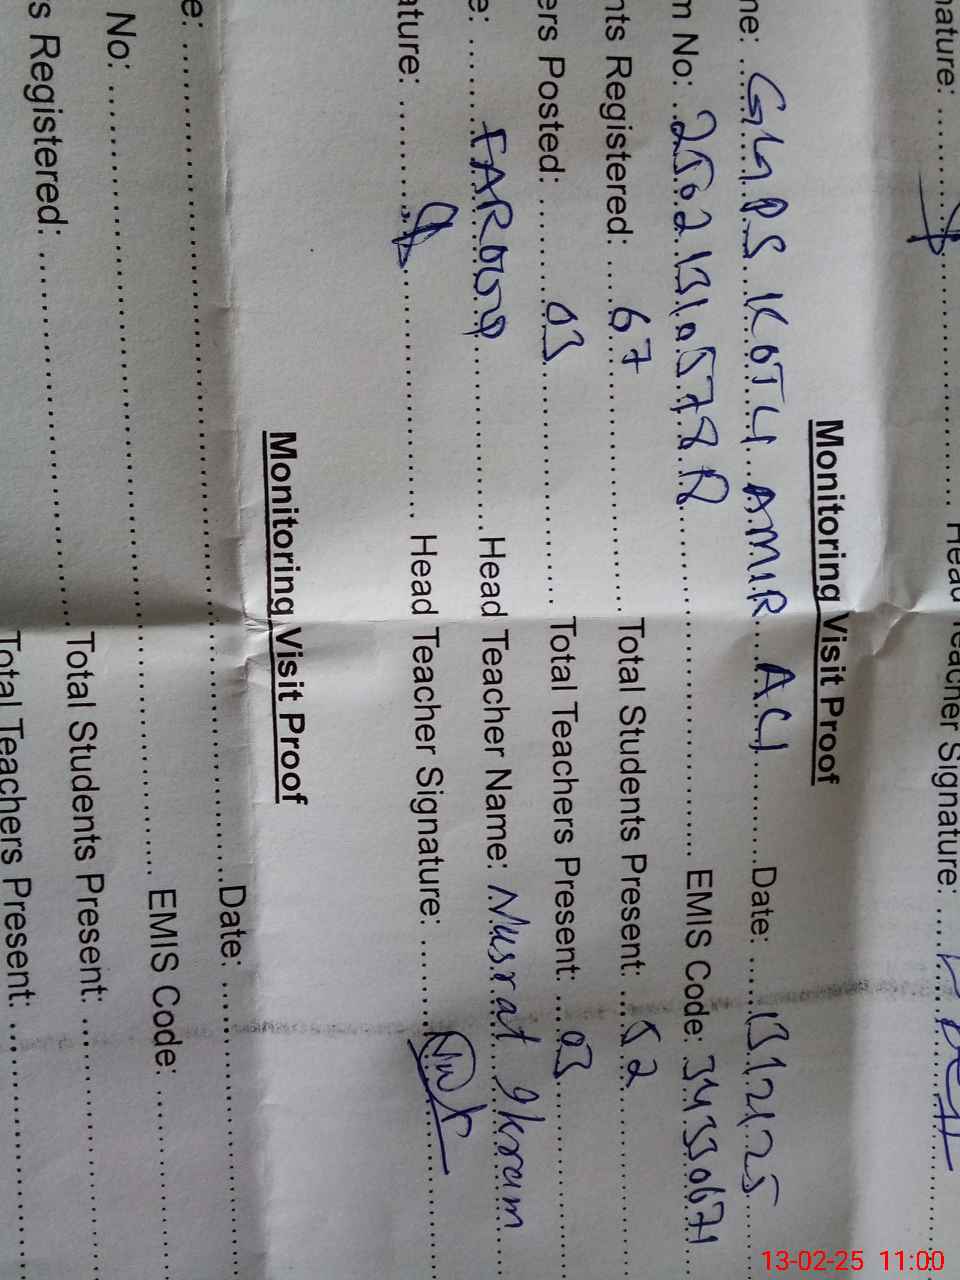 nature: .......... Head Teacher Signature: ....
Monitoring Visit Proof
ne: GGPS KOTLI AMIR ALI Date: 13/2/25
m No: 25021310578R EMIS Code: 34330671
nts Registered: 67 Total Students Present: 52
ers Posted: 03 Total Teachers Present: 03
e: FAROOQ Head Teacher Name: Nusrat Ikram
ature: .......... Head Teacher Signature: ..........
Monitoring Visit Proof
e: .......... Date: ..........
No: .......... EMIS Code: ..........
s Registered: .......... Total Students Present: ..........
Total Teachers Present: ..........
13-02-25 11:00